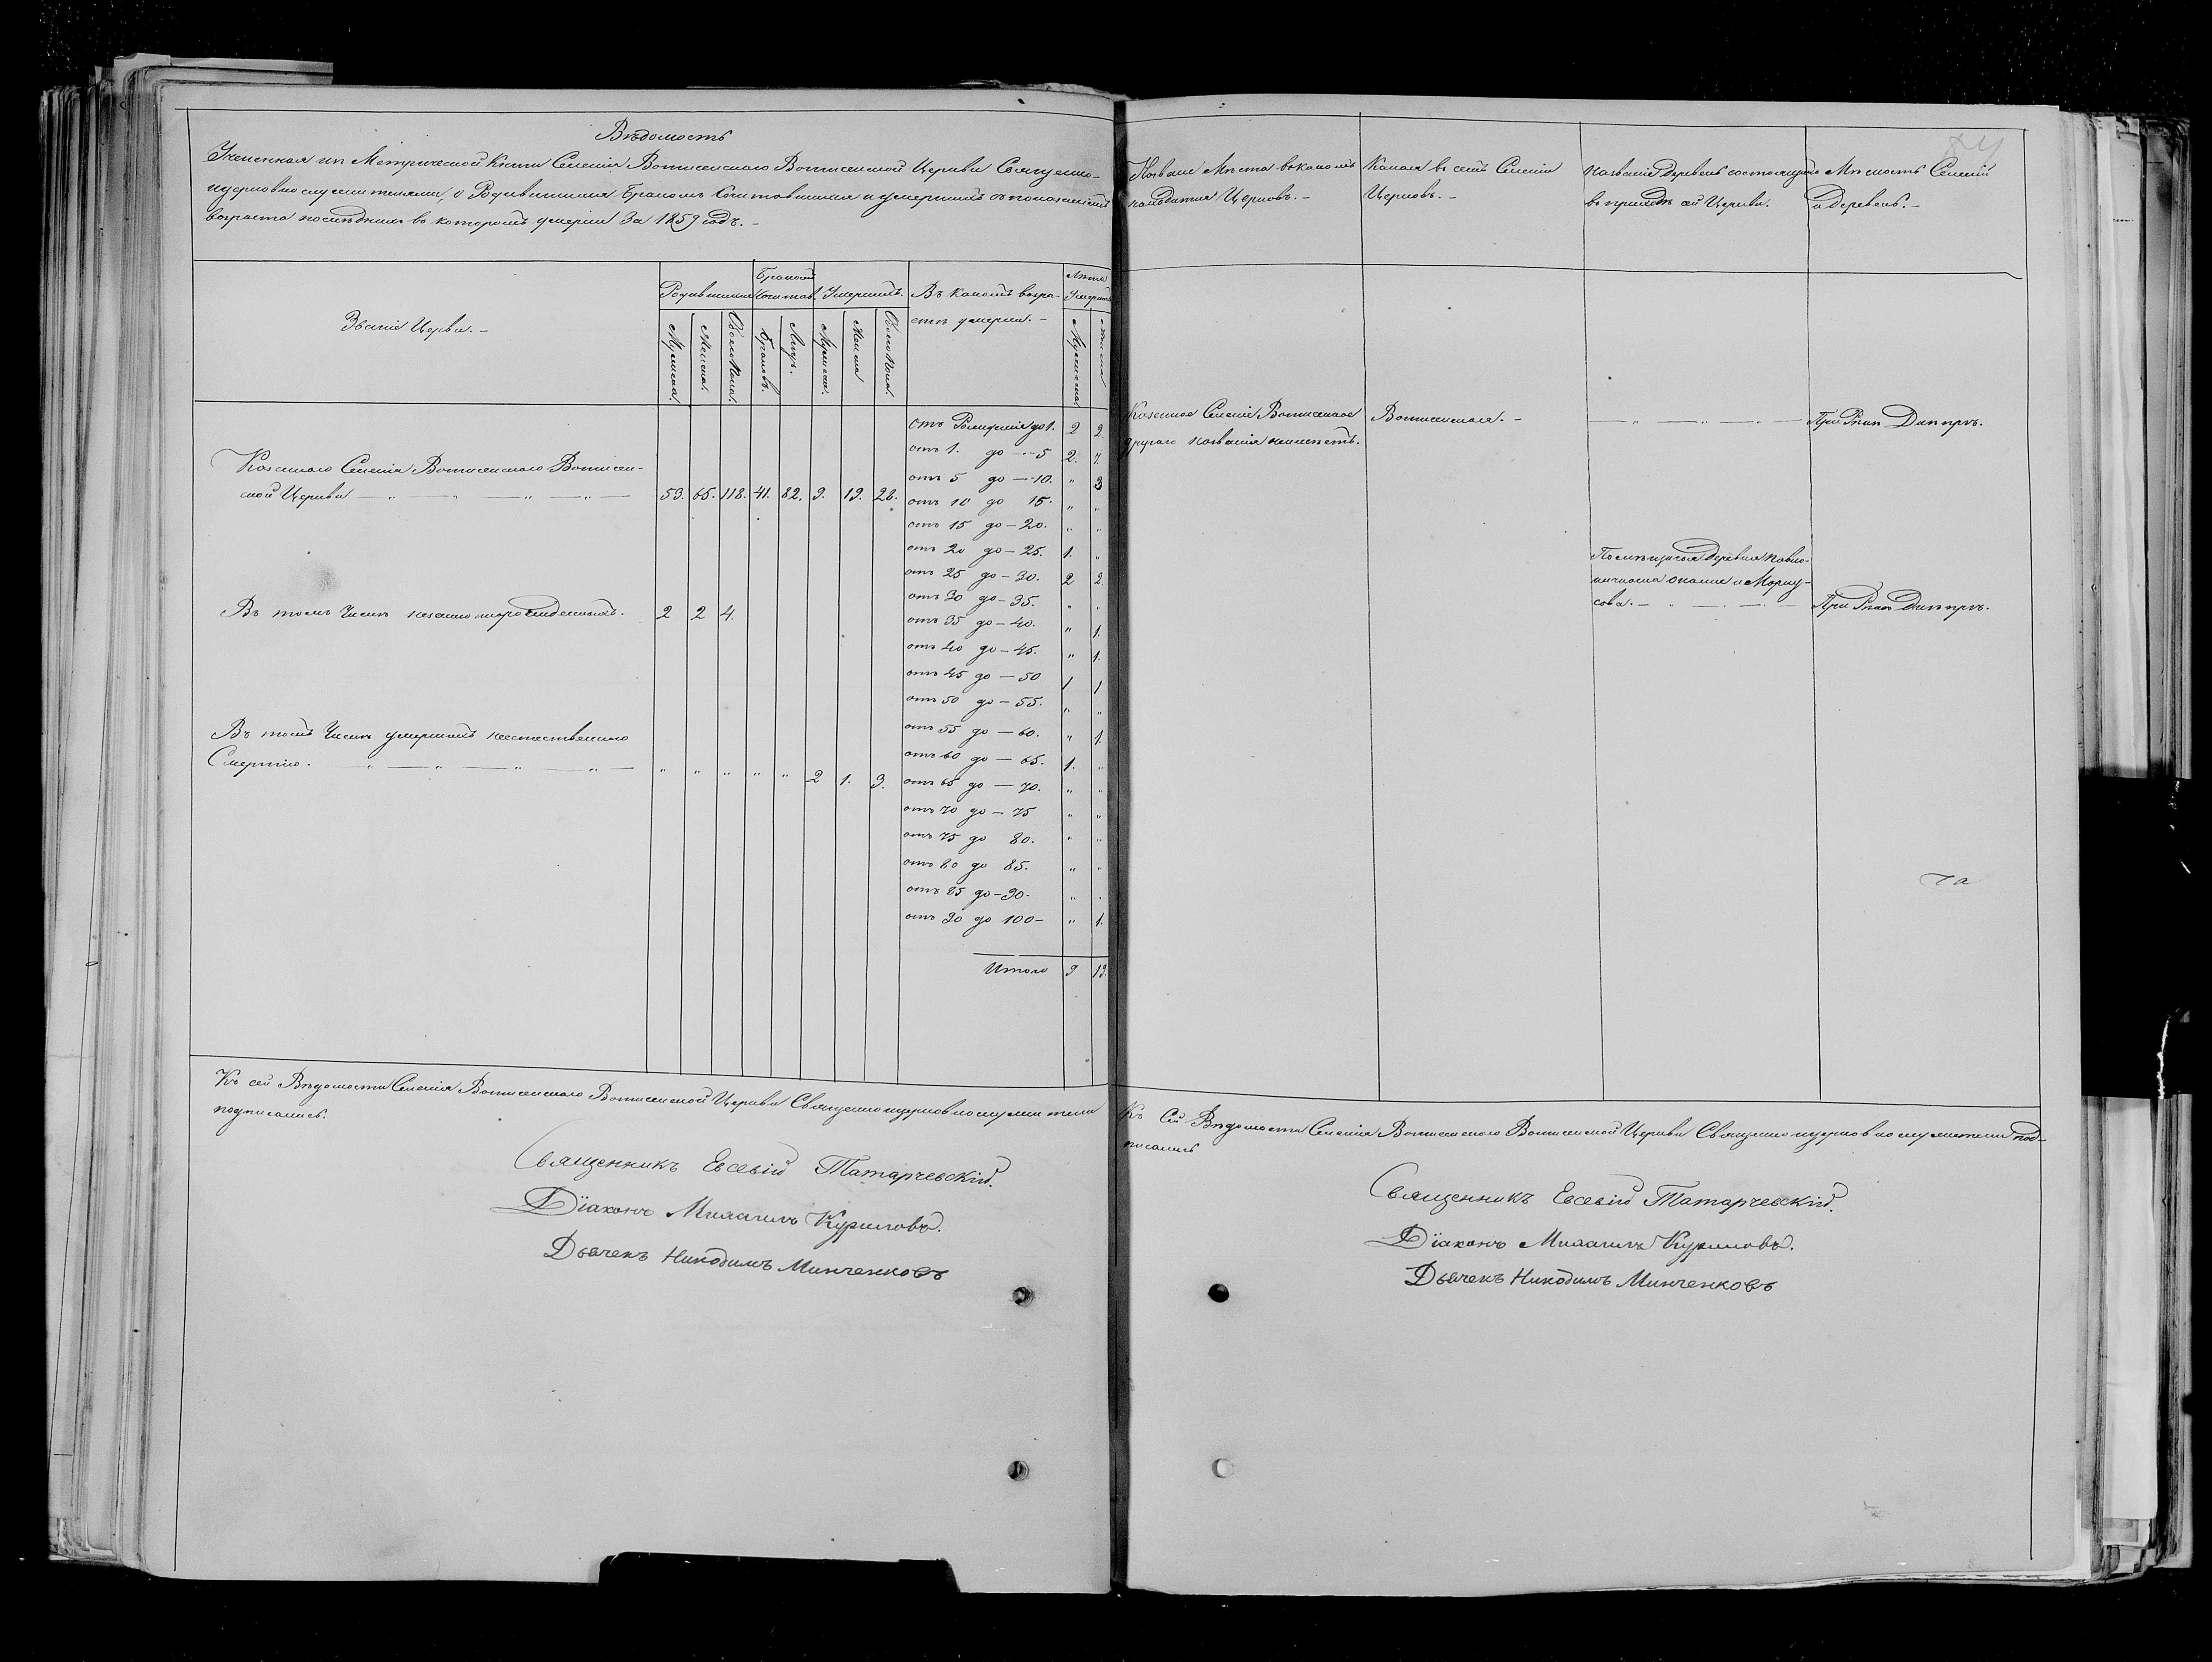 Вѣдомость
Учиненная изъ Метрической Книги Селенія Вознесенскаго Вознесенской Церкви Священно-
церковнослужителями, о Родившихся Бракомъ Сочетавшихся и умершихъ съ показаніемъ
возраста послѣднихъ въ которомъ умерли За 1859 годъ. –
Званіе Церкви. –
Родившихся
Бракомъ Сочетав.
Умершихъ.
Въ какомъ возра-
стѣ умерли. –
Лѣта Умершихъ
Мужеска.
Женска.
Обоего пола.
Браковъ.
Лицъ.
Мужеска.
Женска
Обоего пола.
Мужеска.
Женска
Казеннаго Селенія Вознесенскаго Вознесен-
ской Церкви — „ — „ — „ — „ — 53. 65. 118. 41. 82. 9. 19. 28.
Въ томъ Числѣ незаконнорожденныхъ. 2 2 4.
Въ томъ Числѣ умершихъ неестественною
Смертію. „ — „ — „ — „ — „ „ „ „ „ 2 1. 3.
отъ Рожденія до 1. 2 2.
отъ 1. до — 5 2. 7.
отъ 5 до — 10. „ 3
отъ 10 до 15. „ „
отъ 15 до — 20. „ „
отъ 20 до — 25. 1. „
отъ 25 до — 30. 2 2.
отъ 30 до — 35. „ „
отъ 35 до — 40. „ 1.
отъ 40 до — 45. „ 1.
отъ 45 до — 50 1 1
отъ 50 до — 55. „ „
отъ 55 до — 60. „ 1.
отъ 60 до — 65. 1. „
отъ 65 до — 70. „ „
отъ 70 до — 75 „ „
отъ 75 до 80. „ „
отъ 80 до 85. „ „
отъ 85 до — 90. „ „
отъ 90 до 100 – „ 1.
Итого 9 19
Къ сей Вѣдомости Селенія Вознесенскаго Вознесенской Церкви Священноцерковнослужители
подписались.
Священникъ Евсевій Татарчевскій.
Діаконъ Михаилъ Куриловъ.
Дьячекъ Никодимъ Минченковъ
Названіе Мѣста въ какомъ
находится Церковь. –
Какая въ семъ Селеніи
Церковь. –
названіе Деревень состоящихъ
въ приходѣ сей Церкви.
Мѣстность Селеній
и деревень. –
Казенное Селеніе Вознесенское
другаго названія не имѣетъ.
Вознесенская. –
— „ — „ — „ —
При Рѣкѣ Днѣпрѣ.
Помѣщичья Деревня Павло-
сова. — „ — „ — „ —
При Рѣкѣ Днѣпрѣ.
Къ Сей Вѣдомости Селенія Вознесенскаго Вознесенской Церкви Священноцерковнослужители под-
писались
Священникъ Евсевій Татарчевскій.
Діаконъ Михаилъ Куриловъ.
Дьячекъ Никодимъ Минченковъ